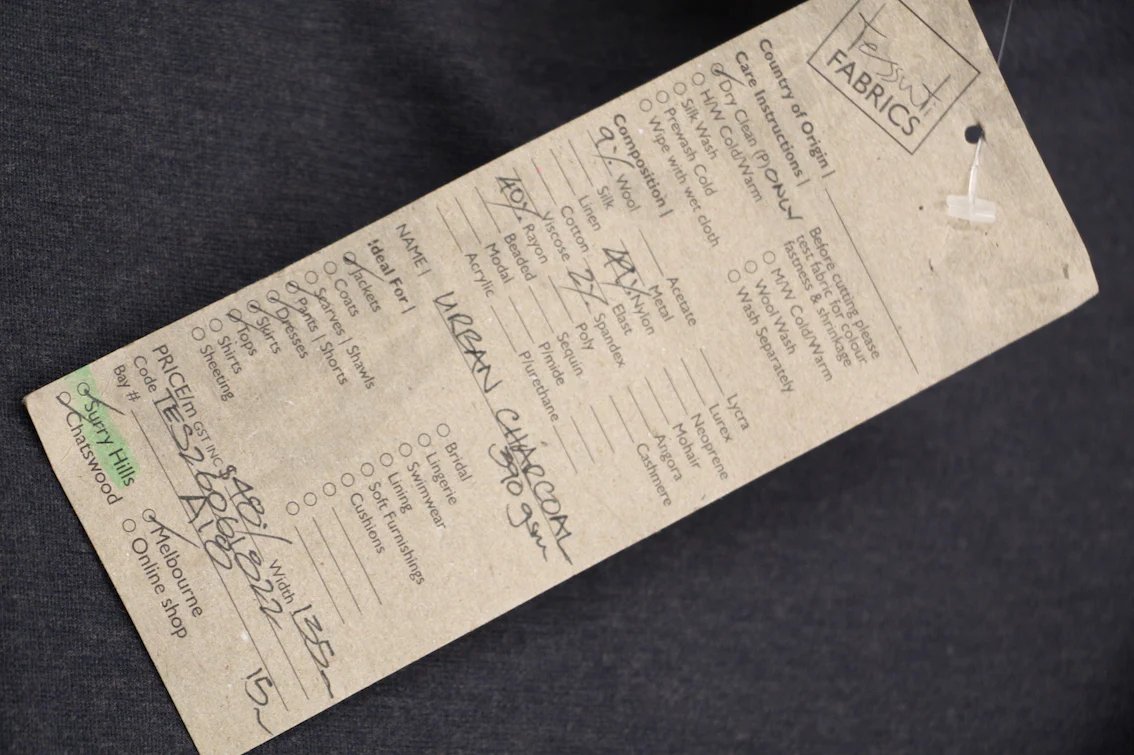 Tessuti
FABRICS
Country of Origin |
Care Instructions |
Dry Clean (P) ONLY
H/W Cold/Warm
Silk Wash
Prewash Cold
Wipe with wet cloth
Before cutting please
test fabric for colour
fastness & shrinkage
M/W Cold/Warm
Wool Wash
Wash Separately
Composition |
9% Wool
Silk
Linen
Cotton
Viscose
40% Rayon
Beaded
Modal
Acrylic
Acetate
Metal
49% Nylon
Elast
2% Spandex
Poly
Sequin
P/mide
P/urethane
Lycra
Lurex
Neoprene
Mohair
Angora
Cashmere
NAME | URBAN CHARCOAL
390 gsm
Ideal For |
Jackets
Coats
Scarves | Shawls
Pants | Shorts
Dresses
Skirts
Tops
Shirts
Sheeting
Bridal
Lingerie
Swimwear
Lining
Soft Furnishings
Cushions
PRICE/m GST INC $48./ Width 135
Code
Bay #
15m
Surry Hills
Chatswood
Melbourne
Online shop